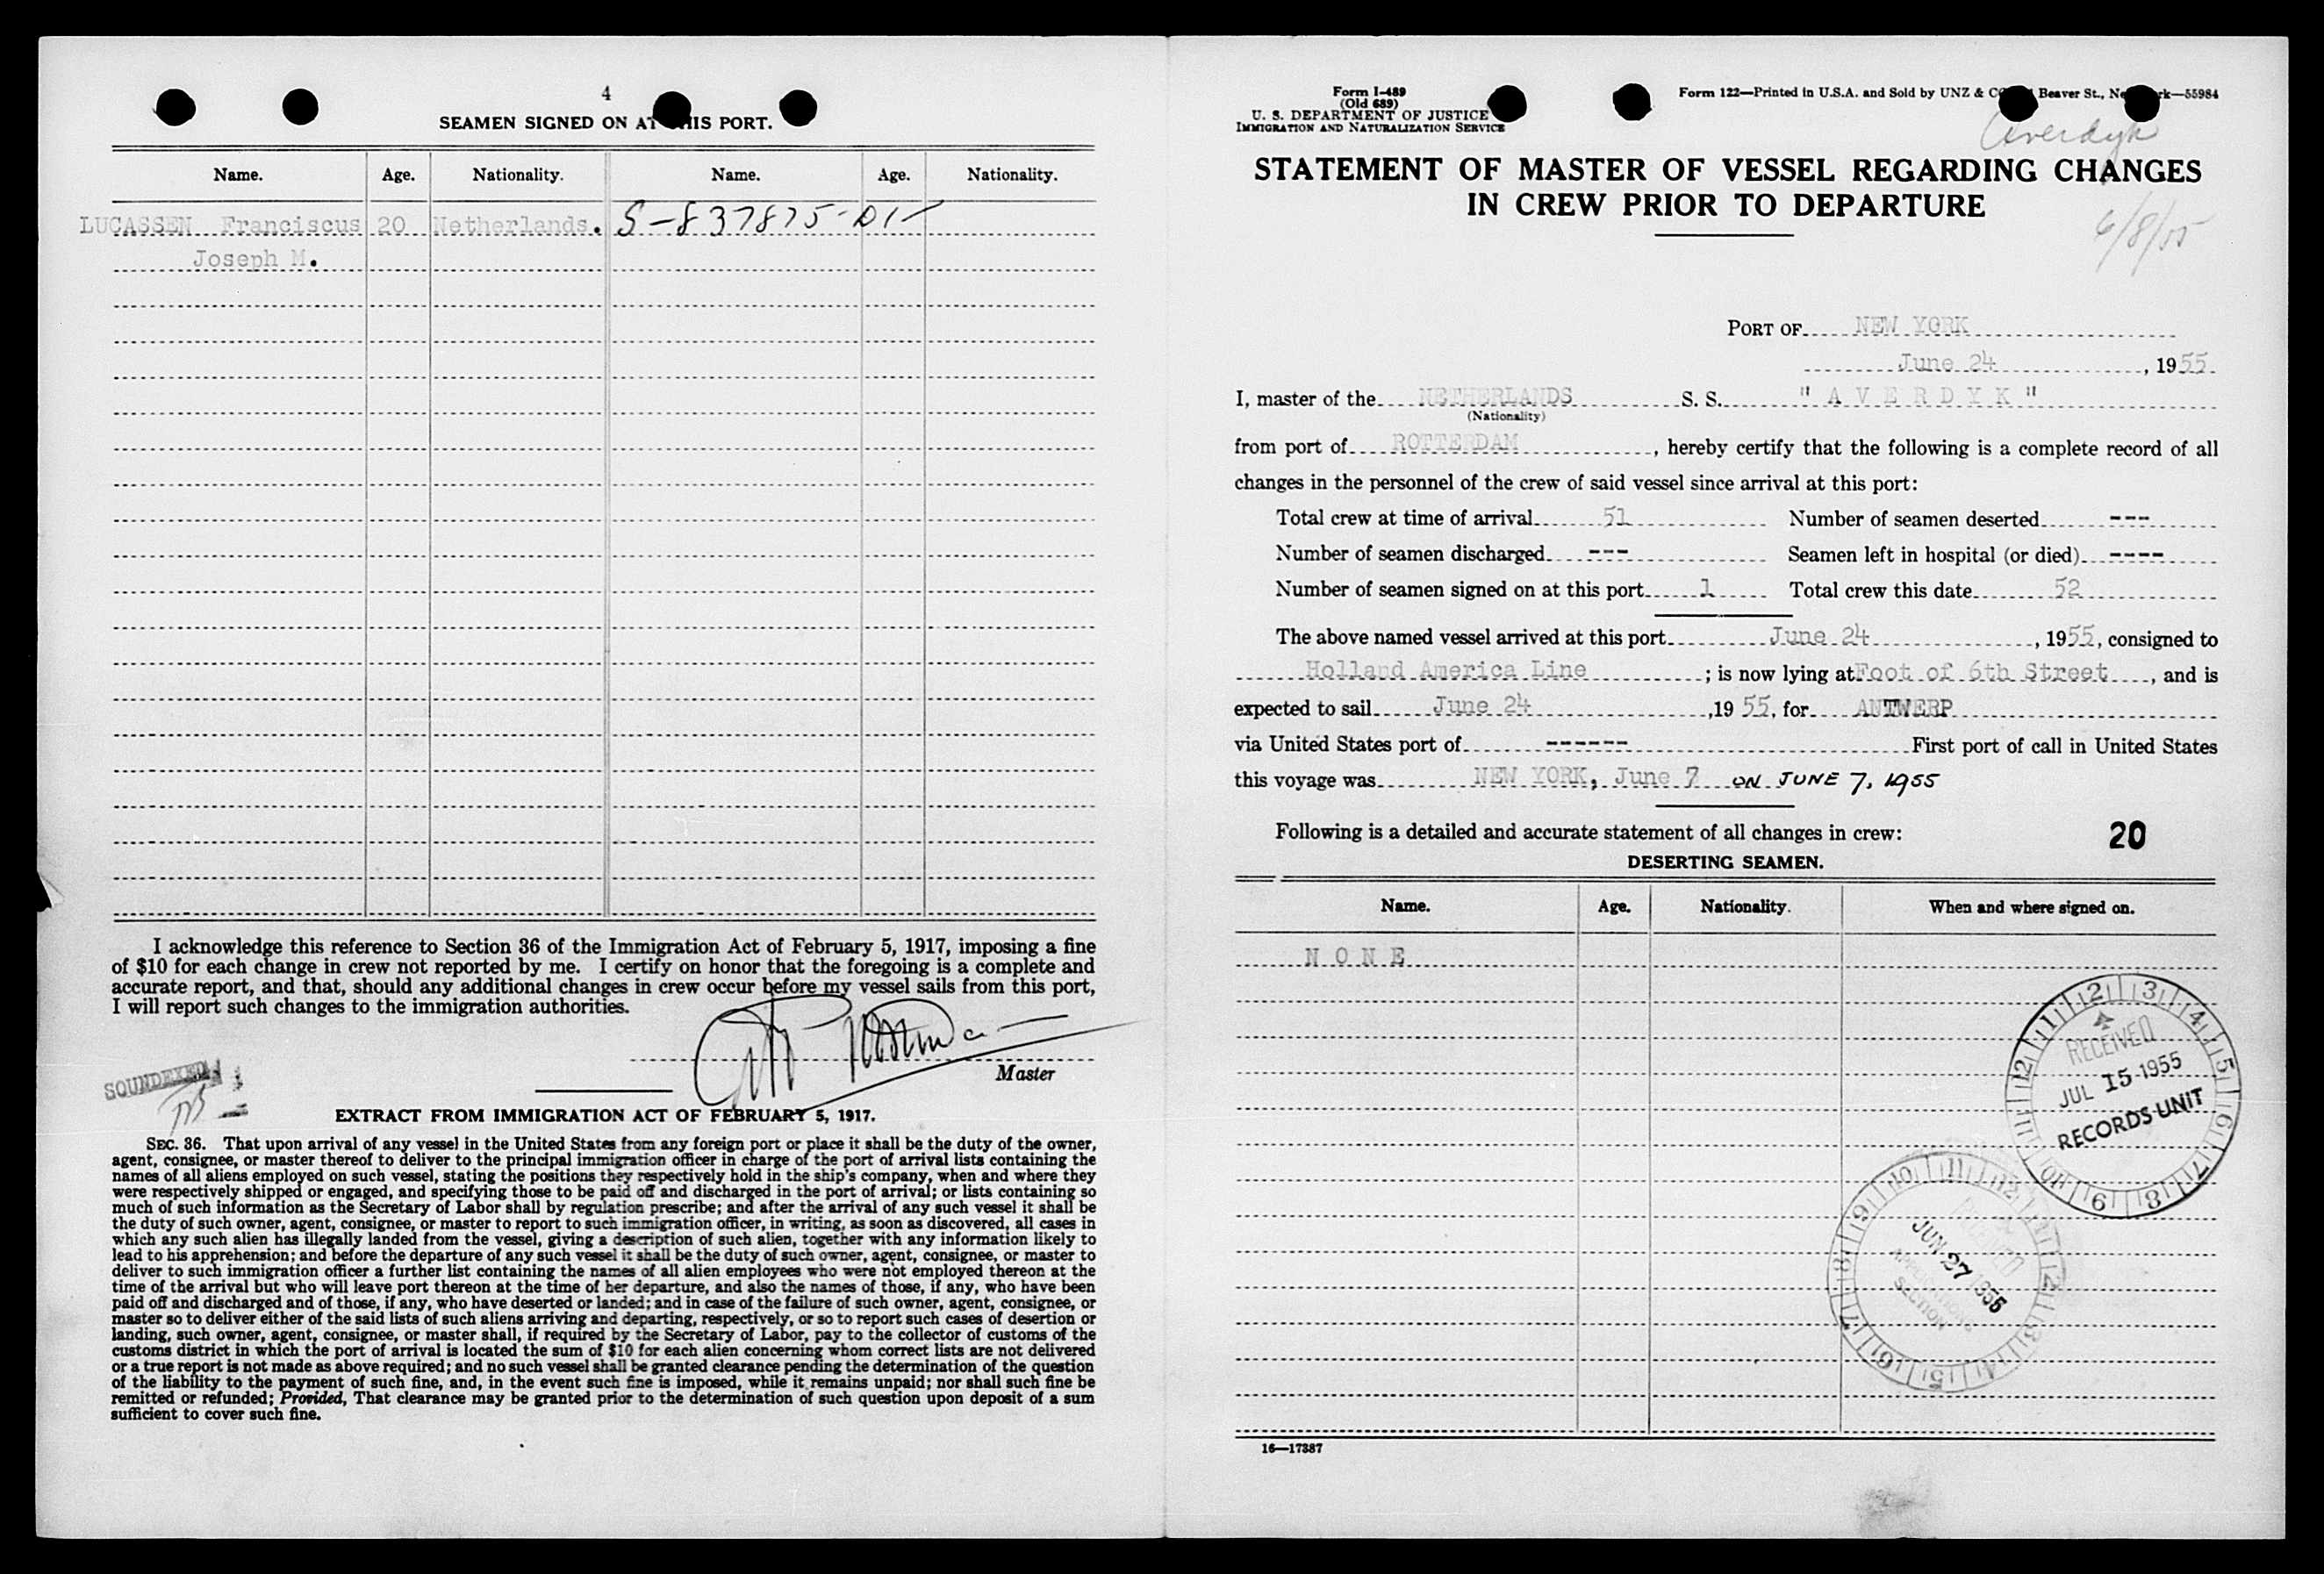 4
SEAMEN SIGNED ON AT THIS PORT.
Name. Age. Nationality. Name. Age. Nationality.
LUCASSEN Franciscus 20 Netherlands. S-837875-D1-
Joseph M.
I acknowledge this reference to Section 36 of the Immigration Act of February 5, 1917, imposing a fine
of $10 for each change in crew not reported by me. I certify on honor that the foregoing is a complete and
accurate report, and that, should any additional changes in crew occur before my vessel sails from this port,
I will report such changes to the immigration authorities.
Master
SOUNDEXED
EXTRACT FROM IMMIGRATION ACT OF FEBRUARY 5, 1917.
SEC. 36. That upon arrival of any vessel in the United States from any foreign port or place it shall be the duty of the owner,
agent, consignee, or master thereof to deliver to the principal immigration officer in charge of the port of arrival lists containing the
names of all aliens employed on such vessel, stating the positions they respectively hold in the ship's company, when and where they
were respectively shipped or engaged, and specifying those to be paid off and discharged in the port of arrival; or lists containing so
much of such information as the Secretary of Labor shall by regulation prescribe; and after the arrival of any such vessel it shall be
the duty of such owner, agent, consignee, or master to report to such immigration officer, in writing, as soon as discovered, all cases in
which any such alien has illegally landed from the vessel, giving a description of such alien, together with any information likely to
lead to his apprehension; and before the departure of any such vessel it shall be the duty of such owner, agent, consignee, or master to
deliver to such immigration officer a further list containing the names of all alien employees who were not employed thereon at the
time of the arrival but who will leave port thereon at the time of her departure, and also the names of those, if any, who have been
paid off and discharged and of those, if any, who have deserted or landed; and in case of the failure of such owner, agent, consignee, or
master so to deliver either of the said lists of such aliens arriving and departing, respectively, or so to report such cases of desertion or
landing, such owner, agent, consignee, or master shall, if required by the Secretary of Labor, pay to the collector of customs of the
customs district in which the port of arrival is located the sum of $10 for each alien concerning whom correct lists are not delivered
or a true report is not made as above required; and no such vessel shall be granted clearance pending the determination of the question
of the liability to the payment of such fine, and, in the event such fine is imposed, while it remains unpaid; nor shall such fine be
remitted or refunded; Provided, That clearance may be granted prior to the determination of such question upon deposit of a sum
sufficient to cover such fine.
Form I-489
(Old 689)
U. S. DEPARTMENT OF JUSTICE
IMMIGRATION AND NATURALIZATION SERVICE
Form 122—Printed in U.S.A. and Sold by UNZ & CO Beaver St., New York—55984
Averdyk
STATEMENT OF MASTER OF VESSEL REGARDING CHANGES
IN CREW PRIOR TO DEPARTURE
6/8/55
PORT OF NEW YORK
June 24, 1955
I, master of the NETHERLANDS S. S. "AVERDYK"
(Nationality)
from port of ROTTERDAM, hereby certify that the following is a complete record of all
changes in the personnel of the crew of said vessel since arrival at this port:
Total crew at time of arrival 51 Number of seamen deserted ---
Number of seamen discharged --- Seamen left in hospital (or died) ----
Number of seamen signed on at this port 1 Total crew this date 52
The above named vessel arrived at this port June 24, 1955, consigned to
Holland America Line; is now lying at Foot of 6th Street, and is
expected to sail June 24, 1955, for ANTWERP
via United States port of ------ First port of call in United States
this voyage was NEW YORK, June 7 ON JUNE 7, 1955
Following is a detailed and accurate statement of all changes in crew: 20
DESERTING SEAMEN.
Name. Age. Nationality. When and where signed on.
NONE
RECEIVED
JUL 15 1955
RECORDS UNIT
JUN 27 1955
SECTION
16—17387